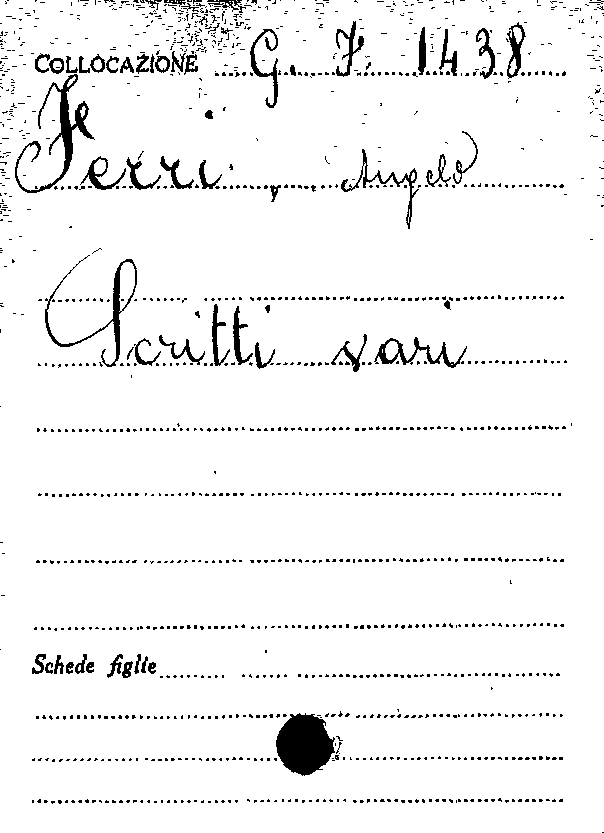 COLLOCAZIONE G. F. 1438
Ferri, Angelo
Scritti vari
Schede figlie